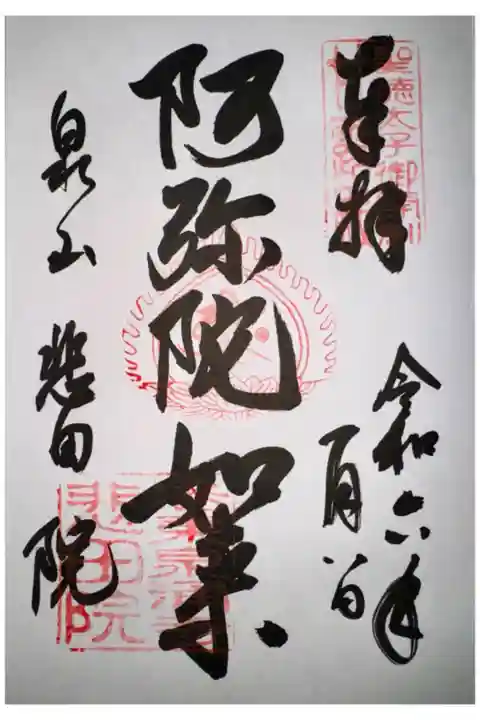 奉拝
聖徳太子御開創
令和六年
一月八日
阿弥陀如来
泉山 悲田院
悲田院